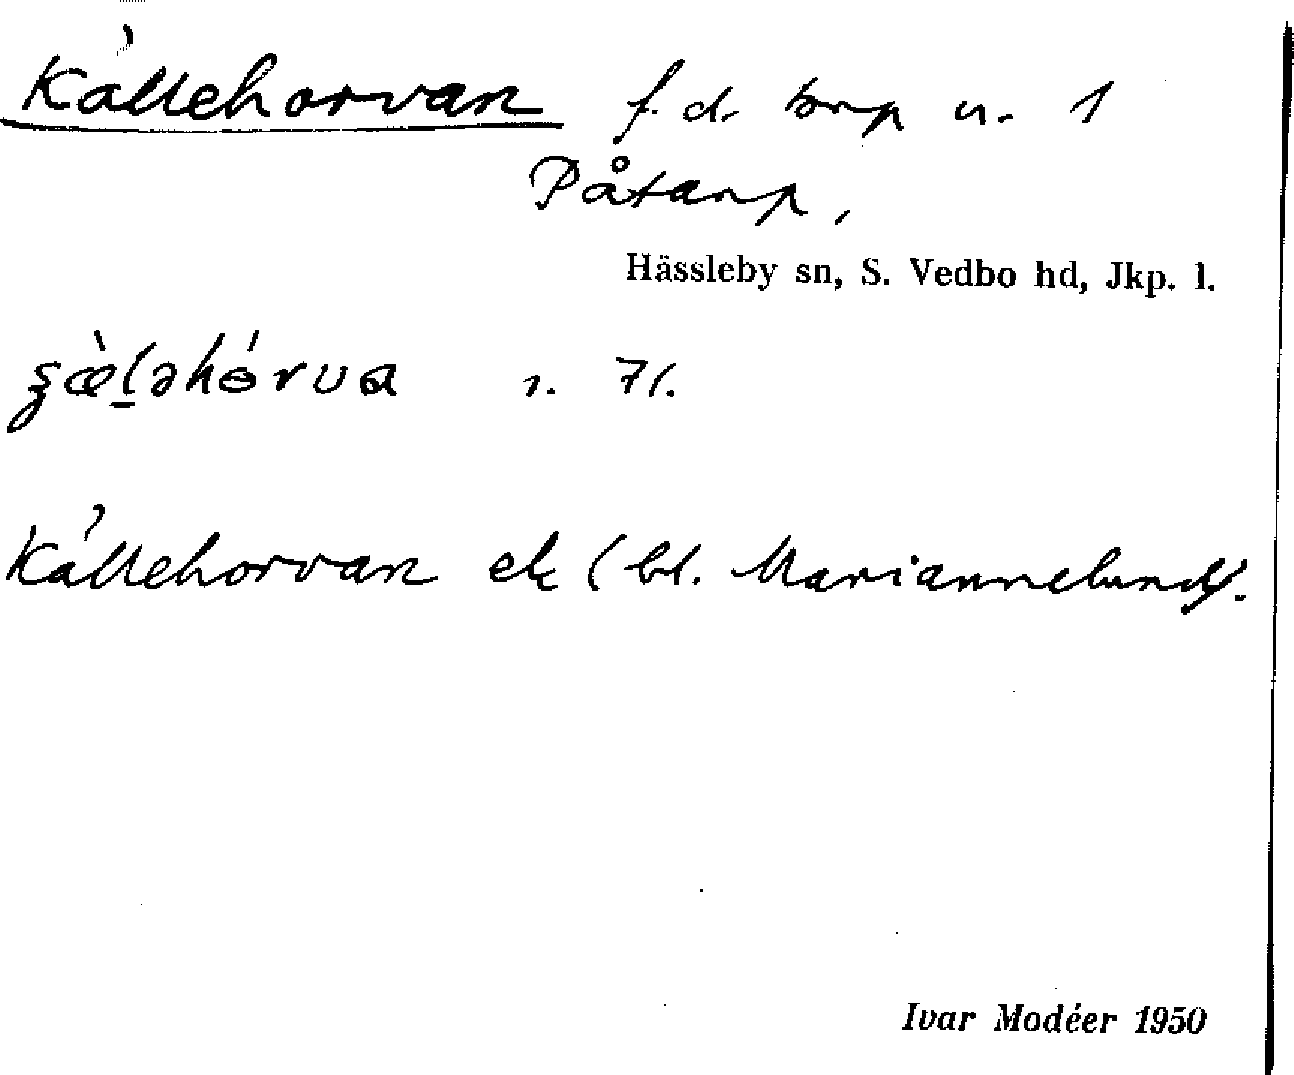 Källehorvan f. d. torp u. 1
Påtarp,
Hässleby sn, S. Vedbo hd, Jkp. l.
1. 71.
Källehorvan ek (bl. Mariannelund).
Ivar Modéer 1950